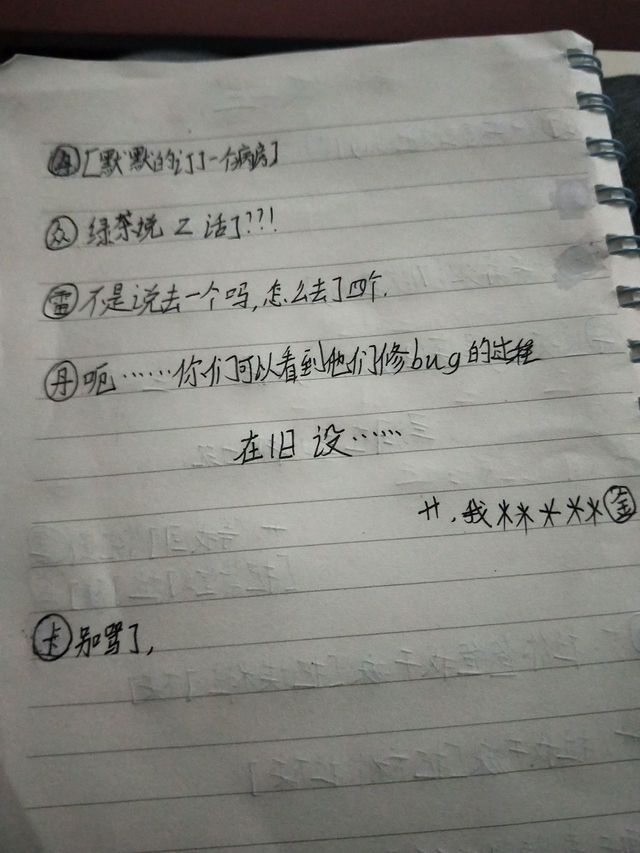 [默默的订了一个病房]
众 绿茶说 Z 活了??!
雷 不是说去一个吗,怎么去了四个.
丹 呃……你们可以看到他们修bug的过程
在旧 设……
艹,我*****金
卡 别骂了,